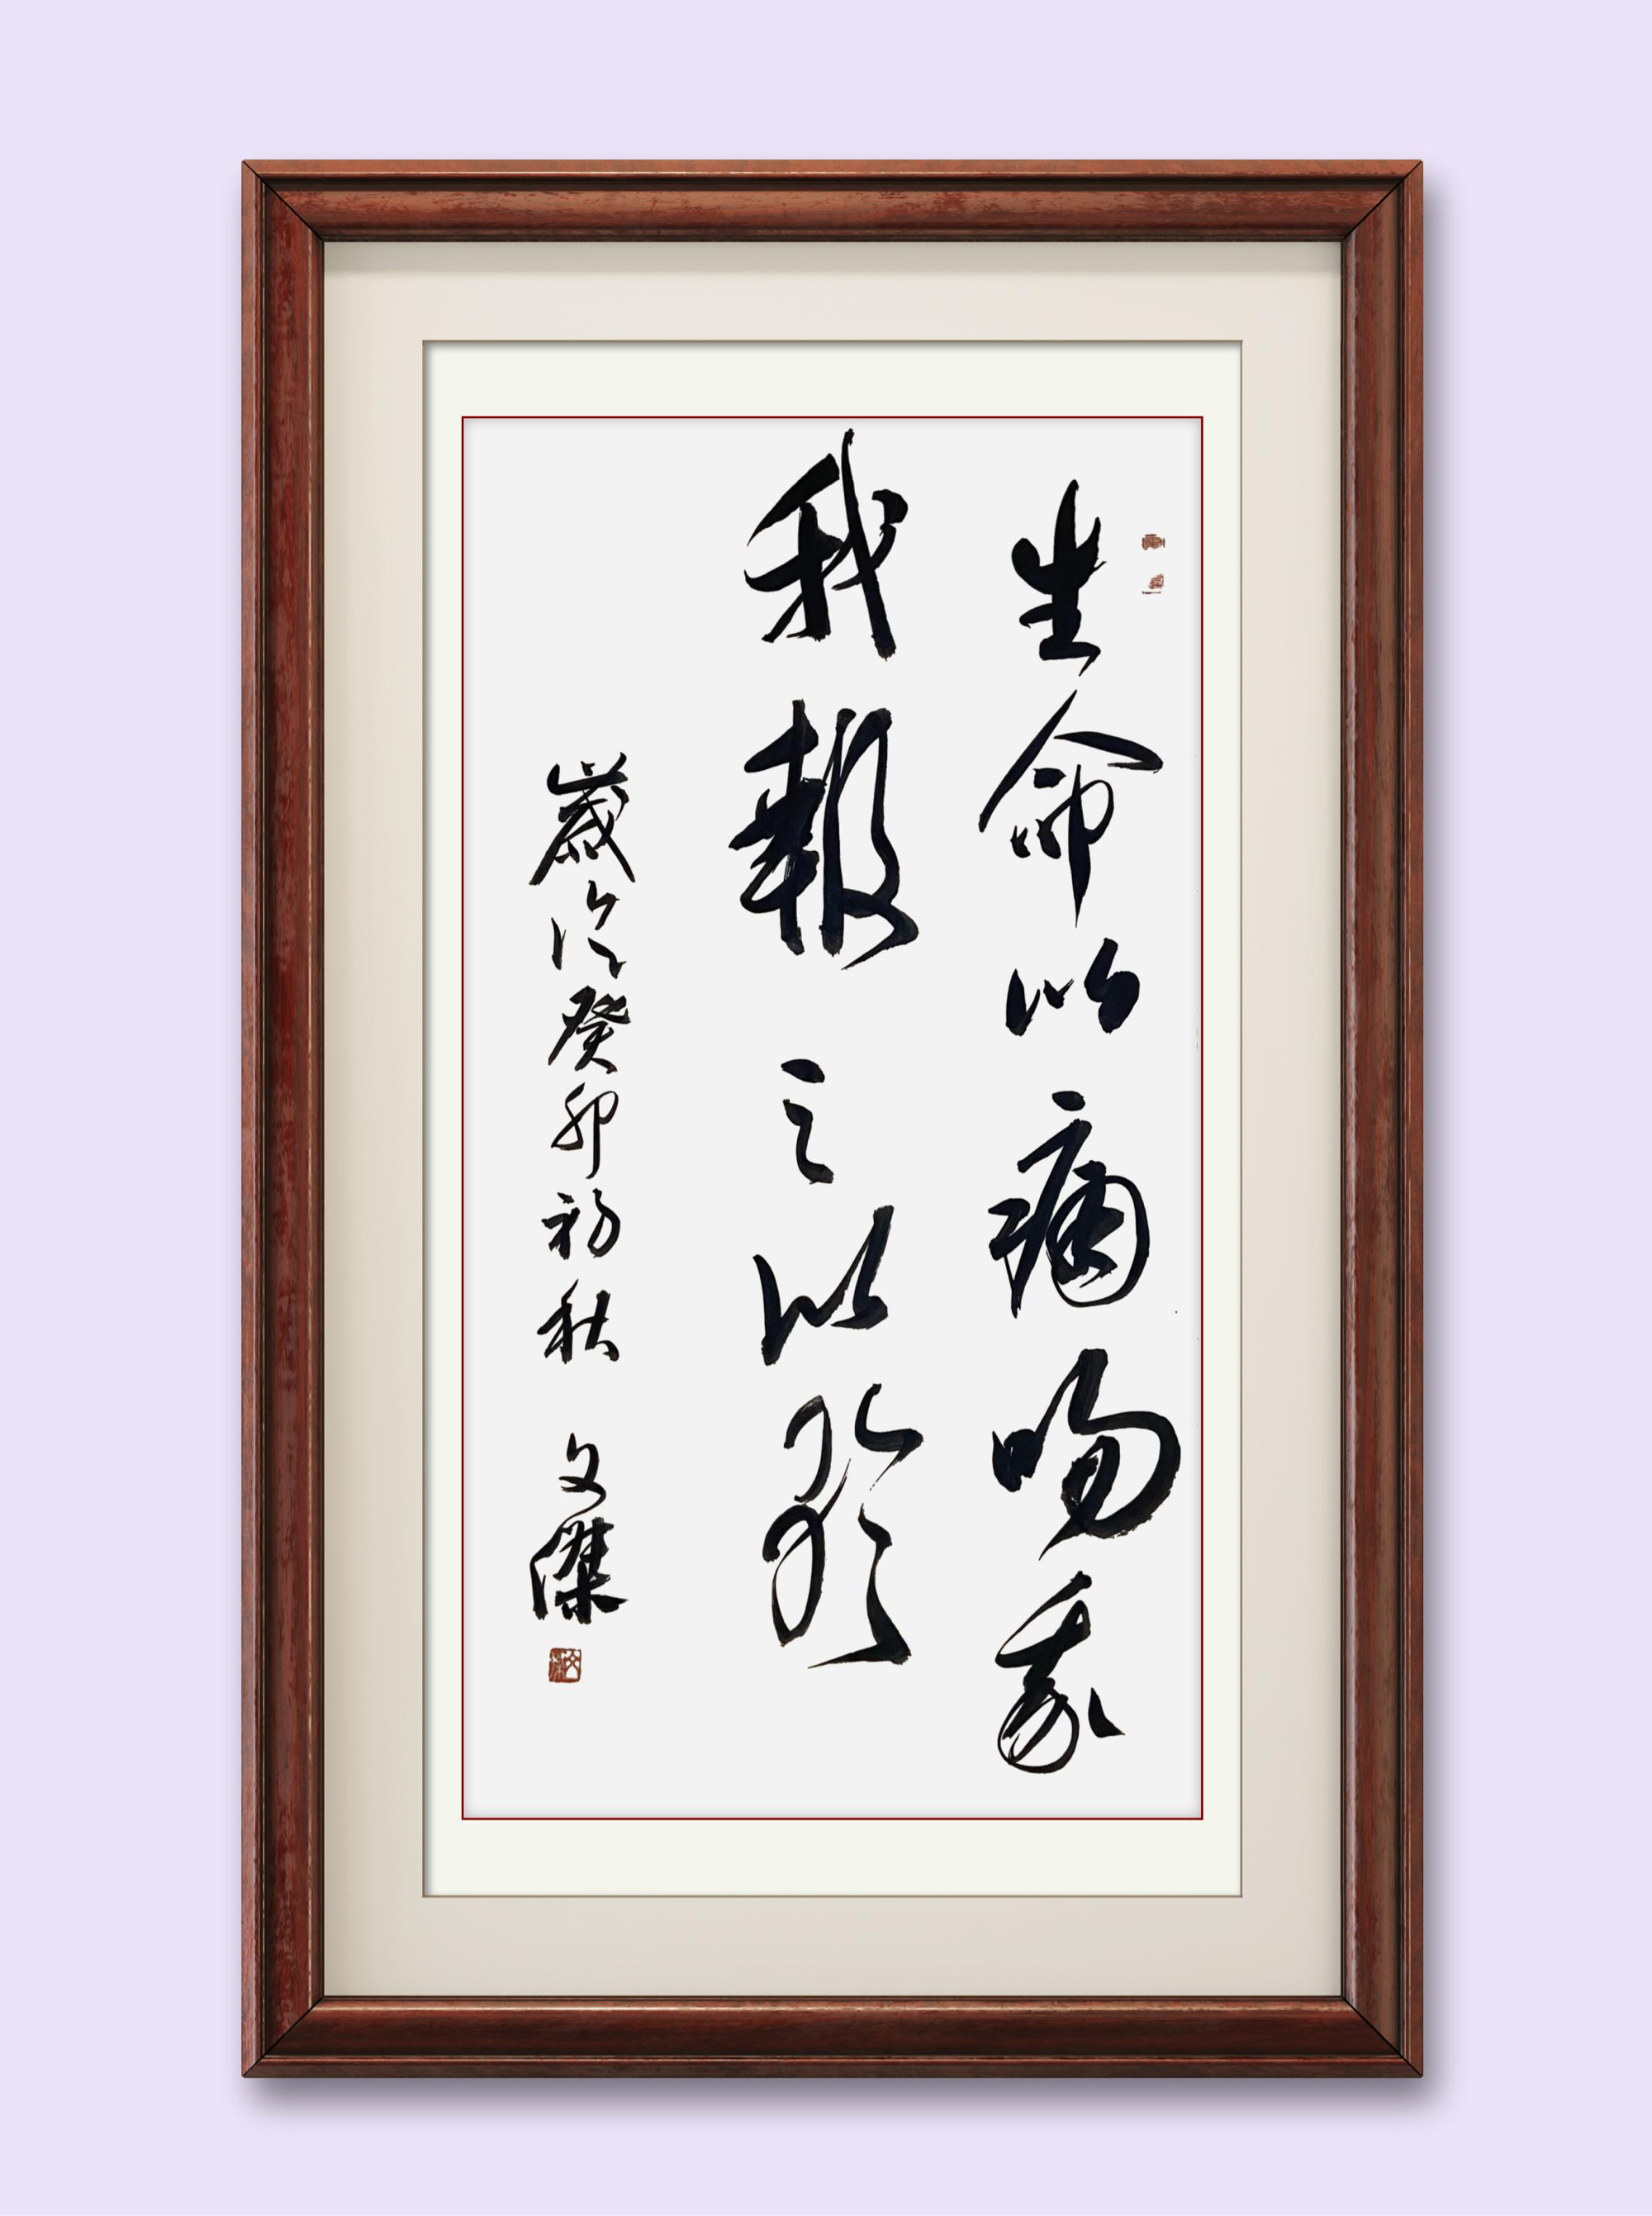 生命以痛吻我
我報之以歌
歲次癸卯初秋 文傑